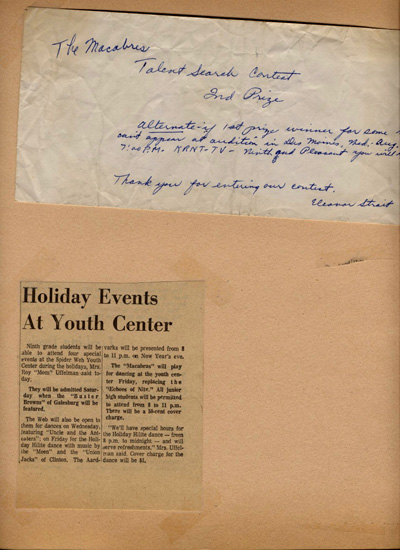 The Macabres
Talent Search Contest
2nd Prize
Alternate - if 1st prize winner for some
can't appear at audition in Des Moines, Wed. Aug.
7:00 P.M. KRNT-TV - Ninth and Pleasant you will
Thank you for entering our contest.
Eleanor Strait
Holiday Events
At Youth Center
Ninth grade students will be
able to attend four special
events at the Spider Web Youth
Center during the holidays, Mrs.
Roy "Mom" Ulfelman said to-
day.
They will be admitted Satur-
day when the "Baxter
Browns" of Galesburg will be
featured.
The Web will also be open to
them for dances on Wednesday,
featuring "Uncle and the
on Friday for the Holi-
day Hilite dance with music by
the "Moen" and the "Union
Jacks" of Clinton. The Aard-
varks will be presented from 8
to 11 p.m. on New Year's eve.
The "Macabres" will play
for dancing at the youth cen-
ter Friday, replacing the
"Echoes of Nite." All junior
high students will be permitted
to attend from 8 to 11 p.m.
There will be a 50-cent cover
charge.
"We'll have special hours for
the Holiday Hilite dance — from
8 p.m. to midnight — and will
serve refreshments," Mrs. Ulfel-
man said. Cover charge for the
dance will be $1.